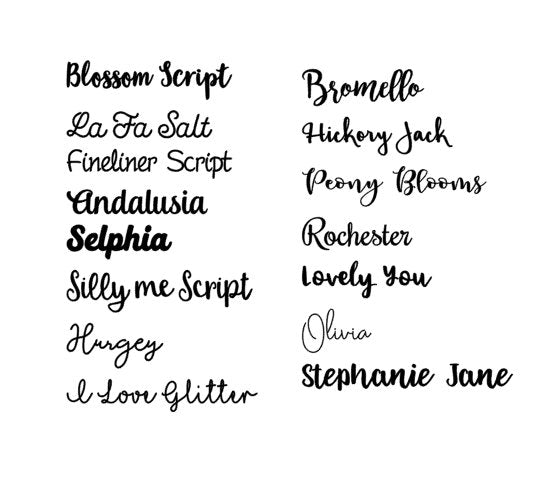 Blossom Script
La Fa Salt
Fineliner Script
Andalusia
Selphia
Silly me Script
Hurgey
I Love Glitter
Bromello
Hickory Jack
Peony Blooms
Rochester
Lovely You
Olivia
Stephanie Jane